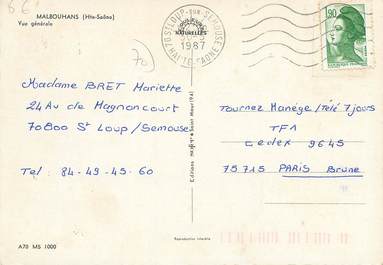 6€
MALBOUHANS (Hte-Saône)
Vue générale
70 ST LOUP-sur-SEMOUSE
NATURELLES
1987
HAUTE SAONE
0,90
70
Madame BRET Mariette
24 Av de Magnoncourt
70800 St Loup/Semouse
Tel : 84-49-45-60
Tournez Manège/Télé 7 jours
TF1
Cedex 9645
75715 PARIS Brune
A70 MS 1000
Reproduction interdite